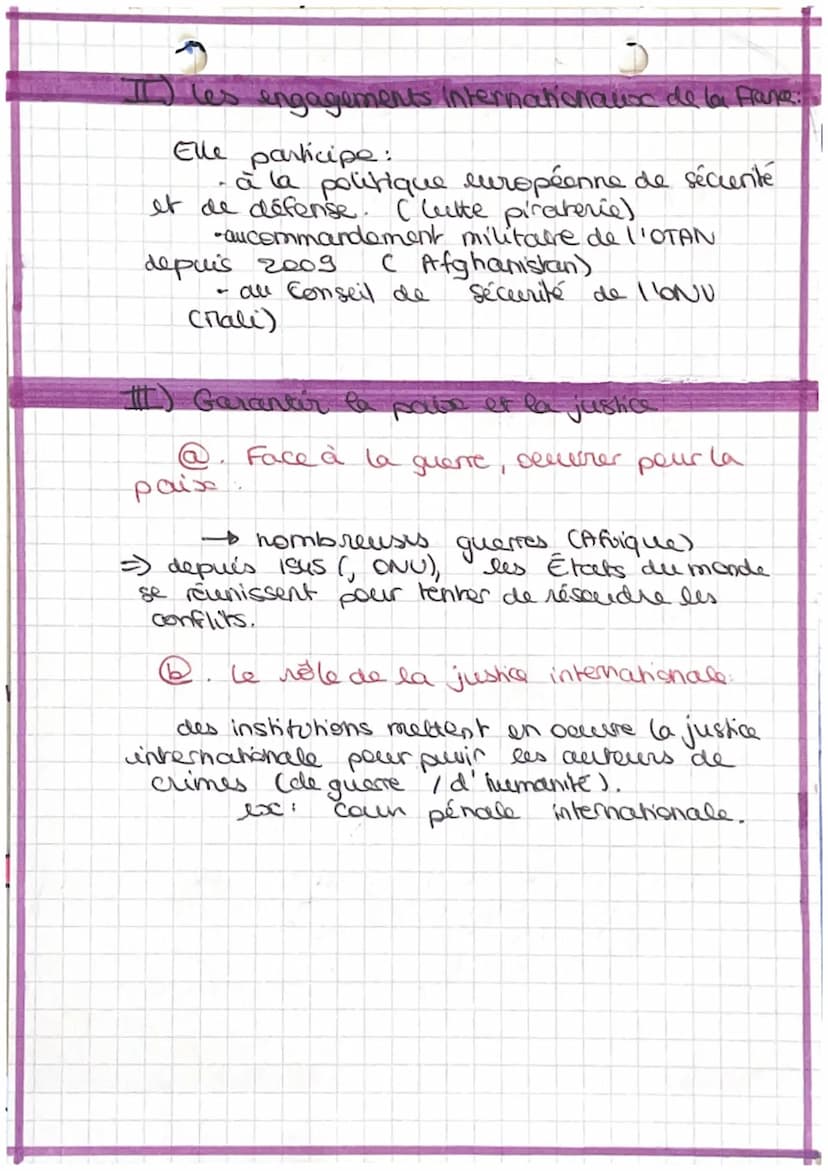 II) Les engagements internationaux de la France:
Elle participe:
- à la politique européenne de sécurité
et de défense. (lutte piraterie)
- au commandement militaire de l'OTAN
depuis 2009 (Afghanistan)
- au Conseil de sécurité de l'ONU
(Mali)
III) Garantir la paix et la justice
a. Face à la guerre, oeuvrer pour la
paix:
→ nombreuses guerres (Afrique)
⇒ depuis 1945 (, ONU), les États du monde
se réunissent pour tenter de résoudre les
conflits.
b. Le rôle de la justice internationale:
des institutions mettent en oeuvre la justice
internationale pour punir les auteurs de
crimes (de guerre / d'humanité).
ex: Cour pénale internationale.